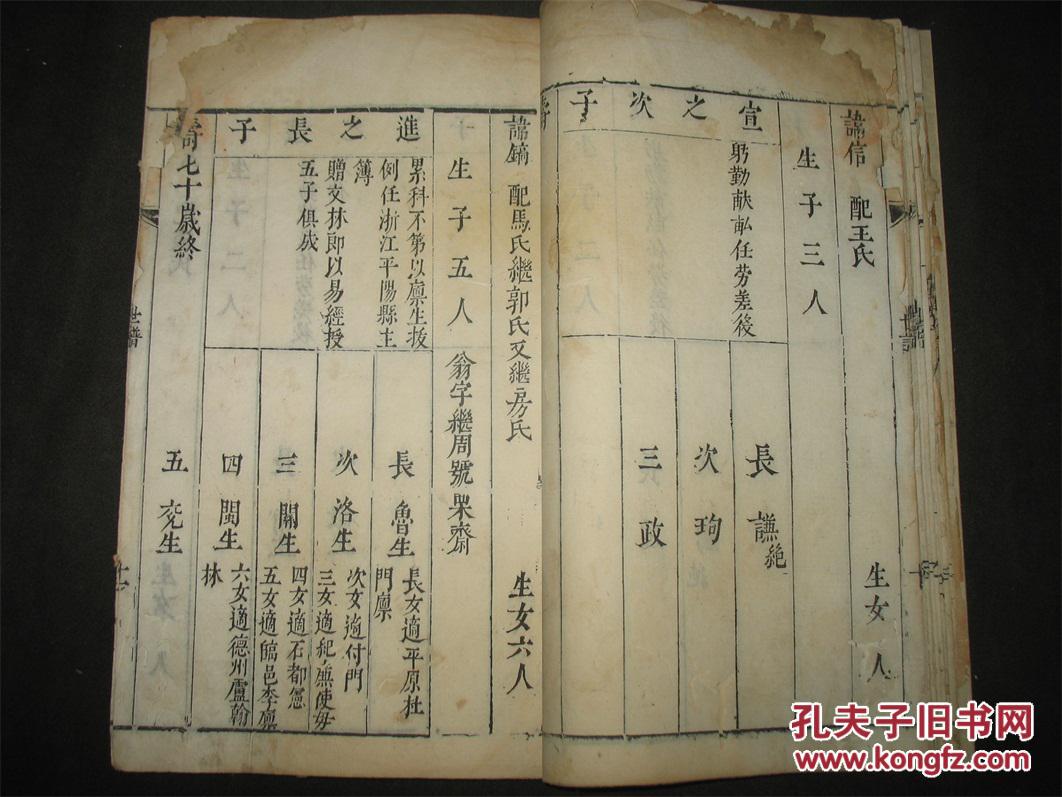 諱信 配王氏 生女 人
生子三人
宣之次子
躬勤畎畝任劳差役
長 謙絶
次 珣
三 政
諱鎬 配馬氏繼郭氏又繼房氏 生女六人
生子五人 翁字繼周號杲齋
進之長子
累科不第以廪生拔
例任浙江平陽縣主
簿
贈文林郎以易經授
五子俱成
長 魯生
次 洛生
三 關生
四 閩生
五 兗生
長女適平原杜
門廪
次女適付門
三女適紀
四女適石都憲
五女適臨邑李廪
六女適德州盧翰
林
壽七十歲終
世譜
孔夫子旧书网
www.kongfz.com